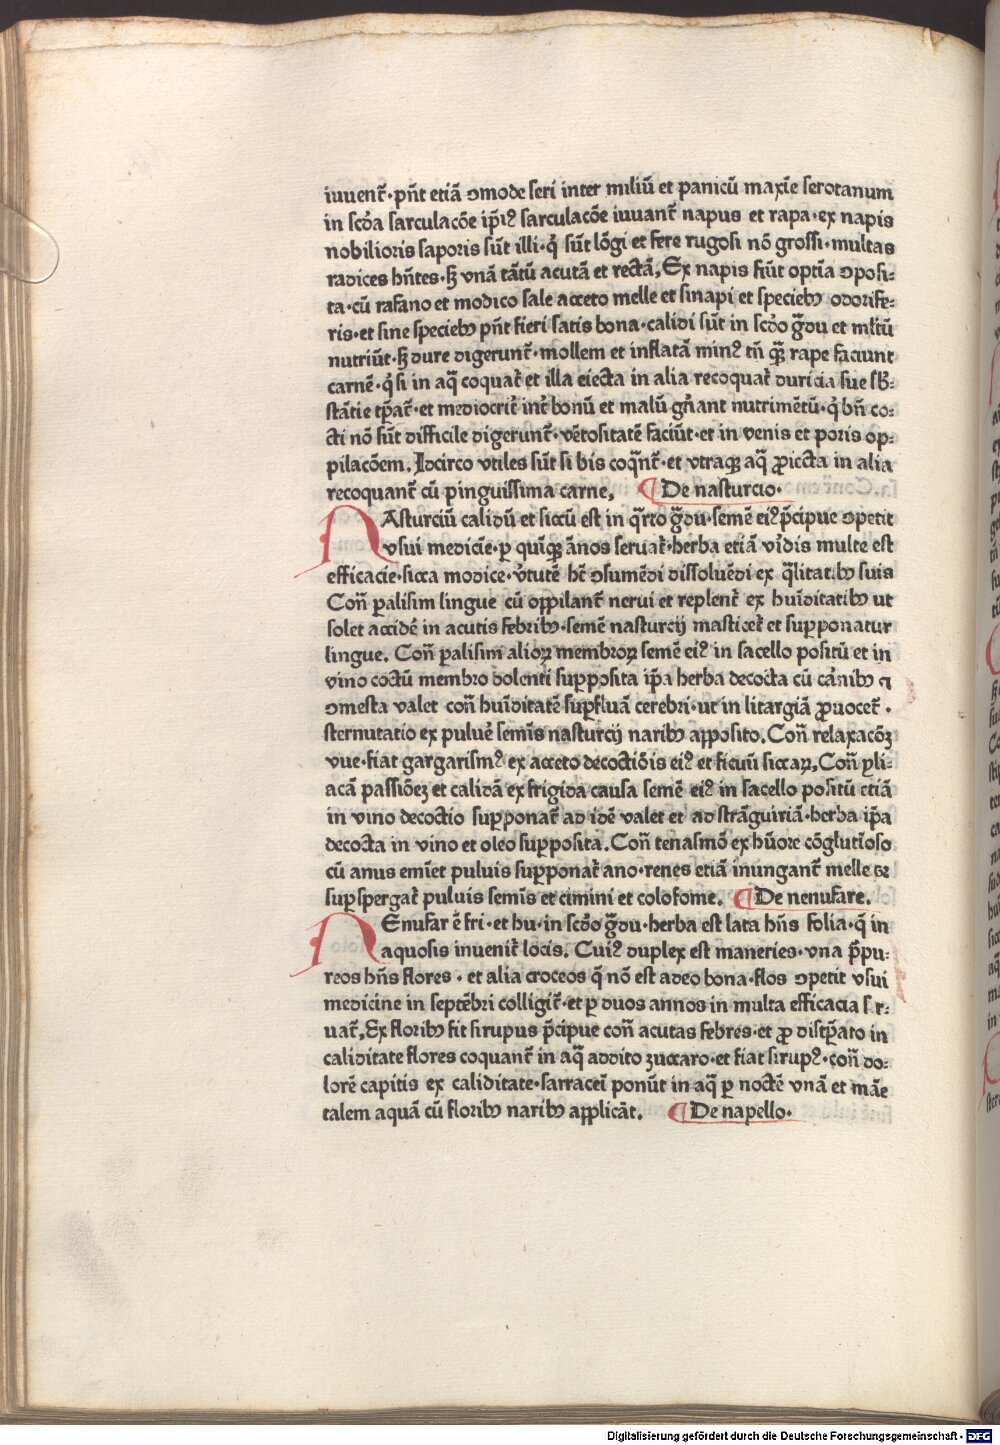 iuuent᷑·pñt etiã ɔmode seri inter miliũ et panicũ maxĩe serotanum
in scḋa sarculacõe ip̃iꝰ sarculacõe iuuant᷑ napus et rapa·ex napis
nobilioris saporis sũt illi·q̇ sũt lõgi et fere rugosi nõ grossi·multas
radices hñtes·ꜩ vnã tãtũ acutã et rectã, Ex napis fiũt optĩa ɔposi-
ta·cũ rafano et modico sale acceto melle et sinapi et speciebꝫ odorife-
ris·et sine speciebꝫ pñt fieri satis bona·calidi sũt in scḋo g̃du et ml̃tũ
nutriũt·ꜩ dure digerunt᷑·mollem et inflatã minꝰ tñ qꝫ rape faciunt
carnẽ·q̇ si in aq̃ coquat᷑ et illa eiecta in alia recoquat᷑ duricia sue sb̃-
stãtie tp̃at᷑·et mediocrit᷑ int᷑ bonũ et malũ gñant nutrimẽtũ·q̇ bñ co-
cti nõ sũt difficile digerunt᷑·vẽtositatẽ faciũt·et in venis et poris op-
pilacõem. Idcirco vtiles sũt si bis coq̃nt᷑·et vtraqꝫ aq̃ ꝓiecta in alia
recoquant᷑ cũ pinguissima carne, ¶ De nasturcio·
NAsturciũ calidũ et siccũ est in q̃rto g̃du·semẽ eiꝰ p̃cipue ɔpetit
vsui medicĩe·ꝑ quĩqꝫ ãnos seruat᷑·herba etiã vi᷑dis multe est
efficacie·sicca modice·v᷑tutẽ hꝫ ɔsumẽdi dissoluẽdi ex q̃litatibꝫ suis
Coñ ꝑalisim lingue cũ oppilant᷑ nerui et replent᷑ ex huĩditatibꝫ ut
solet accidẽ in acutis febribꝫ·semẽ nasturcij masticet᷑ et supponatur
lingue. Coñ ꝑalisim alioꝝ membroꝝ semẽ eiꝰ in sacello positũ et in
vino coctũ membro dolenti supposita ip̃a herba decocta cũ ca᷑nibꝫ ⁊
ɔmesta valet coñ huĩditatẽ suꝑfluã cerebri·ut in litargiã ꝓuocet᷑·
sternutatio ex pulue᷑ semĩs nasturcij naribꝫ apposito. Coñ relaxacõꝫ
vue·fiat gargarismꝰ ex acceto decoctiõis eiꝰ et ficuũ siccaꝝ, Coñ ꝑli-
acã passiõeꝫ et calidã ex frigida causa semẽ eiꝰ in sacello positũ etiã
in vino decoctio supponat᷑ ad idẽ valet et ad strãguiriã·herba ip̃a
decocta in vino et oleo supposita. Coñ tenasmõ ex hũore cõglutĩoso
cũ anus emĩet puluis supponat᷑ ano·renes etiã inungant᷑ melle et
suꝑspergat᷑ puluis semĩs et cimini et colofome. ¶ De nenufare.
NEnufar ẽ fri·et hu·in scḋo g̃du·herba est lata hñs folia·q̃ in
aquosis inuenit᷑ locis. Cuiꝰ duplex est maneries·vna p̃pu-
reos hñs flores·et alia croceos q̃ nõ est adeo bona·flos ɔpetit vsui
medicine in septẽbri colligit᷑·et ꝑ duos annos in multa efficacia s r-
uat᷑, Ex floribꝫ fit sirupus p̃cipue coñ acutas febres·et ꝓ distp̃ato in
caliditate flores coquant᷑ in aq̃ addito zuccaro·et fiat sirupꝰ·coñ do-
lorẽ capitis ex caliditate·sarraceĩ ponũt in aq̃ ꝑ noctẽ vnã et mãe
talem aquã cũ floribꝫ naribꝫ applicãt. ¶ De napello·
Digitalisierung gefördert durch die Deutsche Forschungsgemeinschaft · DFG